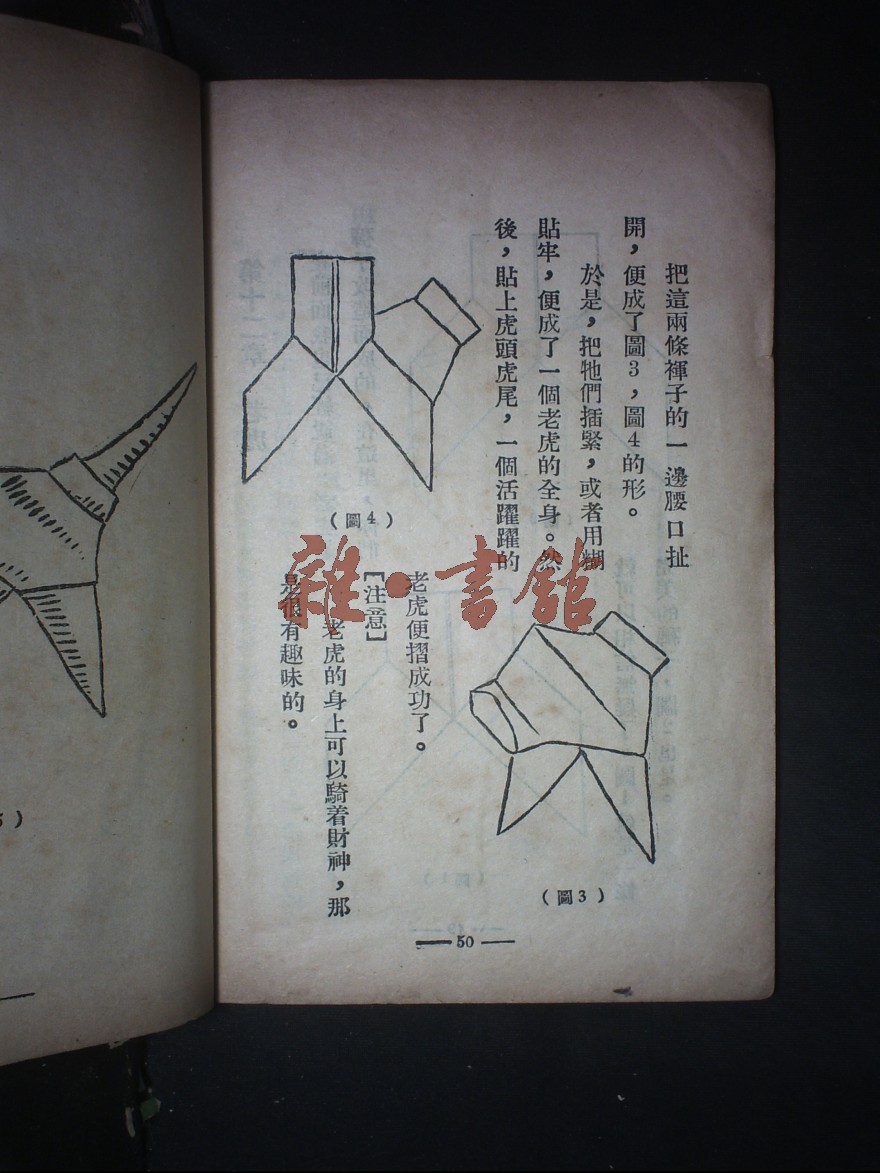 把這兩條褲子的一邊腰口扯
開，便成了圖3，圖4的形。
於是，把牠們插緊，或者用糊
貼牢，便成了一個老虎的全身。然
後，貼上虎頭虎尾，一個活躍躍的
老虎便摺成功了。
【注意】
老虎的身上可以騎着財神，那
是很有趣味的。
（圖4）
（圖3）
50
雜·書館